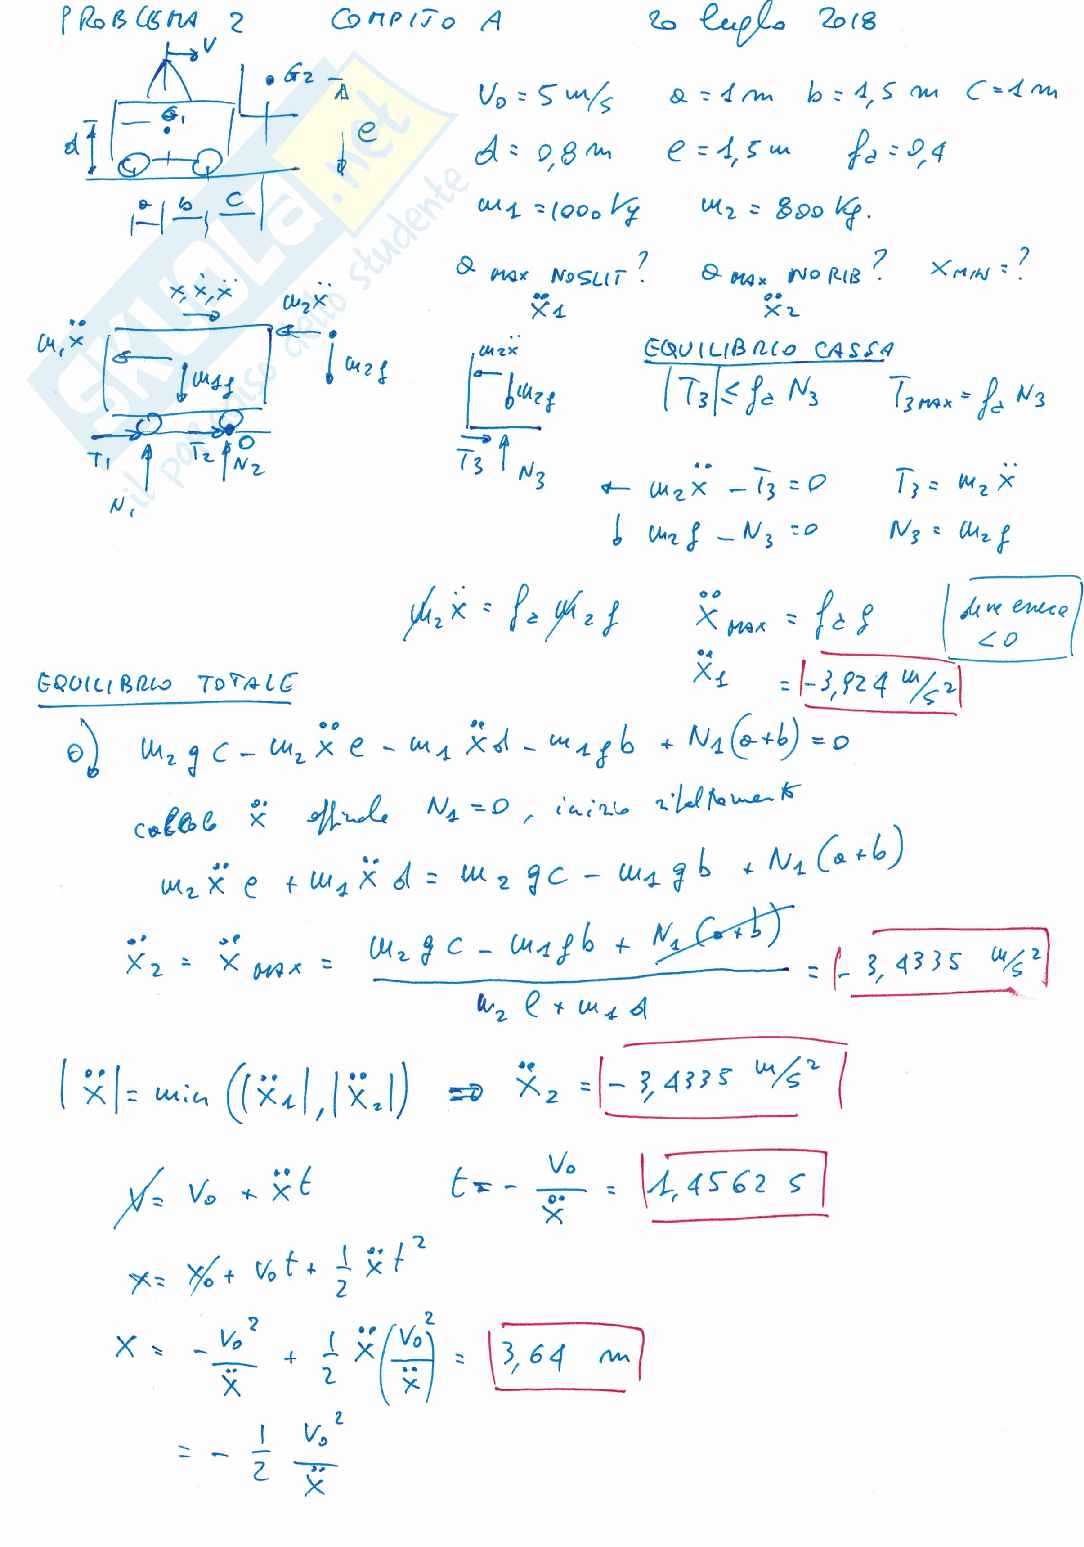 PROBLEMA 2 COMPITO A 20 luglio 2018
V
G2 A
G1
d e
a b c
V0 = 5 m/s a = 1 m b = 1,5 m C = 1 m
d = 0,8 m e = 1,5 m fa = 0,4
m1 = 1000 Kg m2 = 800 Kg.
a MAX NO SLIT? a MAX NO RIB? X MIN = ?
ẍ1 ẍ2
x, ẋ, ẍ
m2ẍ
m1ẍ
m1g m2g
T1 T2 O
N1 N2
m2ẍ
m2g
T3 N3
EQUILIBRIO CASSA
|T3| ≤ fa N3 T3MAX = fa N3
← m2ẍ - T3 = 0 T3 = m2ẍ
↓ m2g - N3 = 0 N3 = m2g
m2ẍ = fa m2g ẍMAX = fa g deve essere < 0
ẍ1 = -3,924 m/s²
EQUILIBRIO TOTALE
O) m2 g c - m2 ẍ e - m1 ẍ d - m1 g b + N1(a+b) = 0
calcolo ẍ N1 = 0, inizio ribaltamento
m2 ẍ e + m1 ẍ d = m2 g c - m1 g b + N1(a+b)
ẍ2 = ẍMAX = m2 g c - m1 g b + N1(a+b) / m2 e + m1 d = -3,4335 m/s²
|ẍ| = min(|ẍ1|, |ẍ2|) ⇒ ẍ2 = -3,4335 m/s²
V = V0 + ẍt t = - V0/ẍ = 1,4562 s
x = x0 + V0 t + 1/2 ẍ t²
X = - V0²/ẍ + 1/2 ẍ (V0/ẍ)² = 3,64 m
= - 1/2 V0²/ẍ
SKUOLA.net
il paradiso dello studente